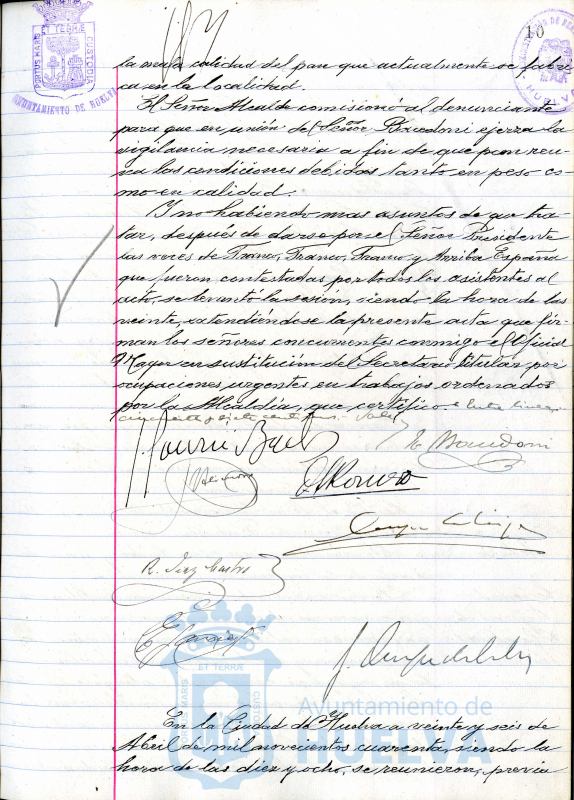 10
PORTUS MARIS ET TERRÆ CUSTODIA
AYUNTAMIENTO DE HUELVA
la mala calidad del pan que actualmente se fabri-
ca en la localidad.
El Señor Alcalde comisionó al denunciante
para que en unión del Señor Macedoni ejerza la
vigilancia necesaria a fin de que pan reu-
na las condiciones debidas tanto en peso co-
mo en calidad.
Y no habiendo mas asuntos de que tra-
tar, después de darse por el Señor Presidente
las voces de Franco, Franco, Franco y Arriba España
que fueron contestadas por todos los asistentes al
acto, se levantó la sesión, siendo la hora de las
veinte, extendiéndose la presente acta que fir-
man los señores concurrentes conmigo el Oficial
Mayor en sustitución del Secretario titular por
ocupaciones urgentes en trabajos ordenados
por la Alcaldía, que certifico.
E. Macedoni
Romero
ET TERRÆ
PORTUS MARIS
CUSTODIA
Ayuntamiento de
HUELVA
En la Ciudad de Huelva a veinte y seis de
Abril de mil novecientos cuarenta, siendo la
hora de las diez y ocho, se reunieron, previa